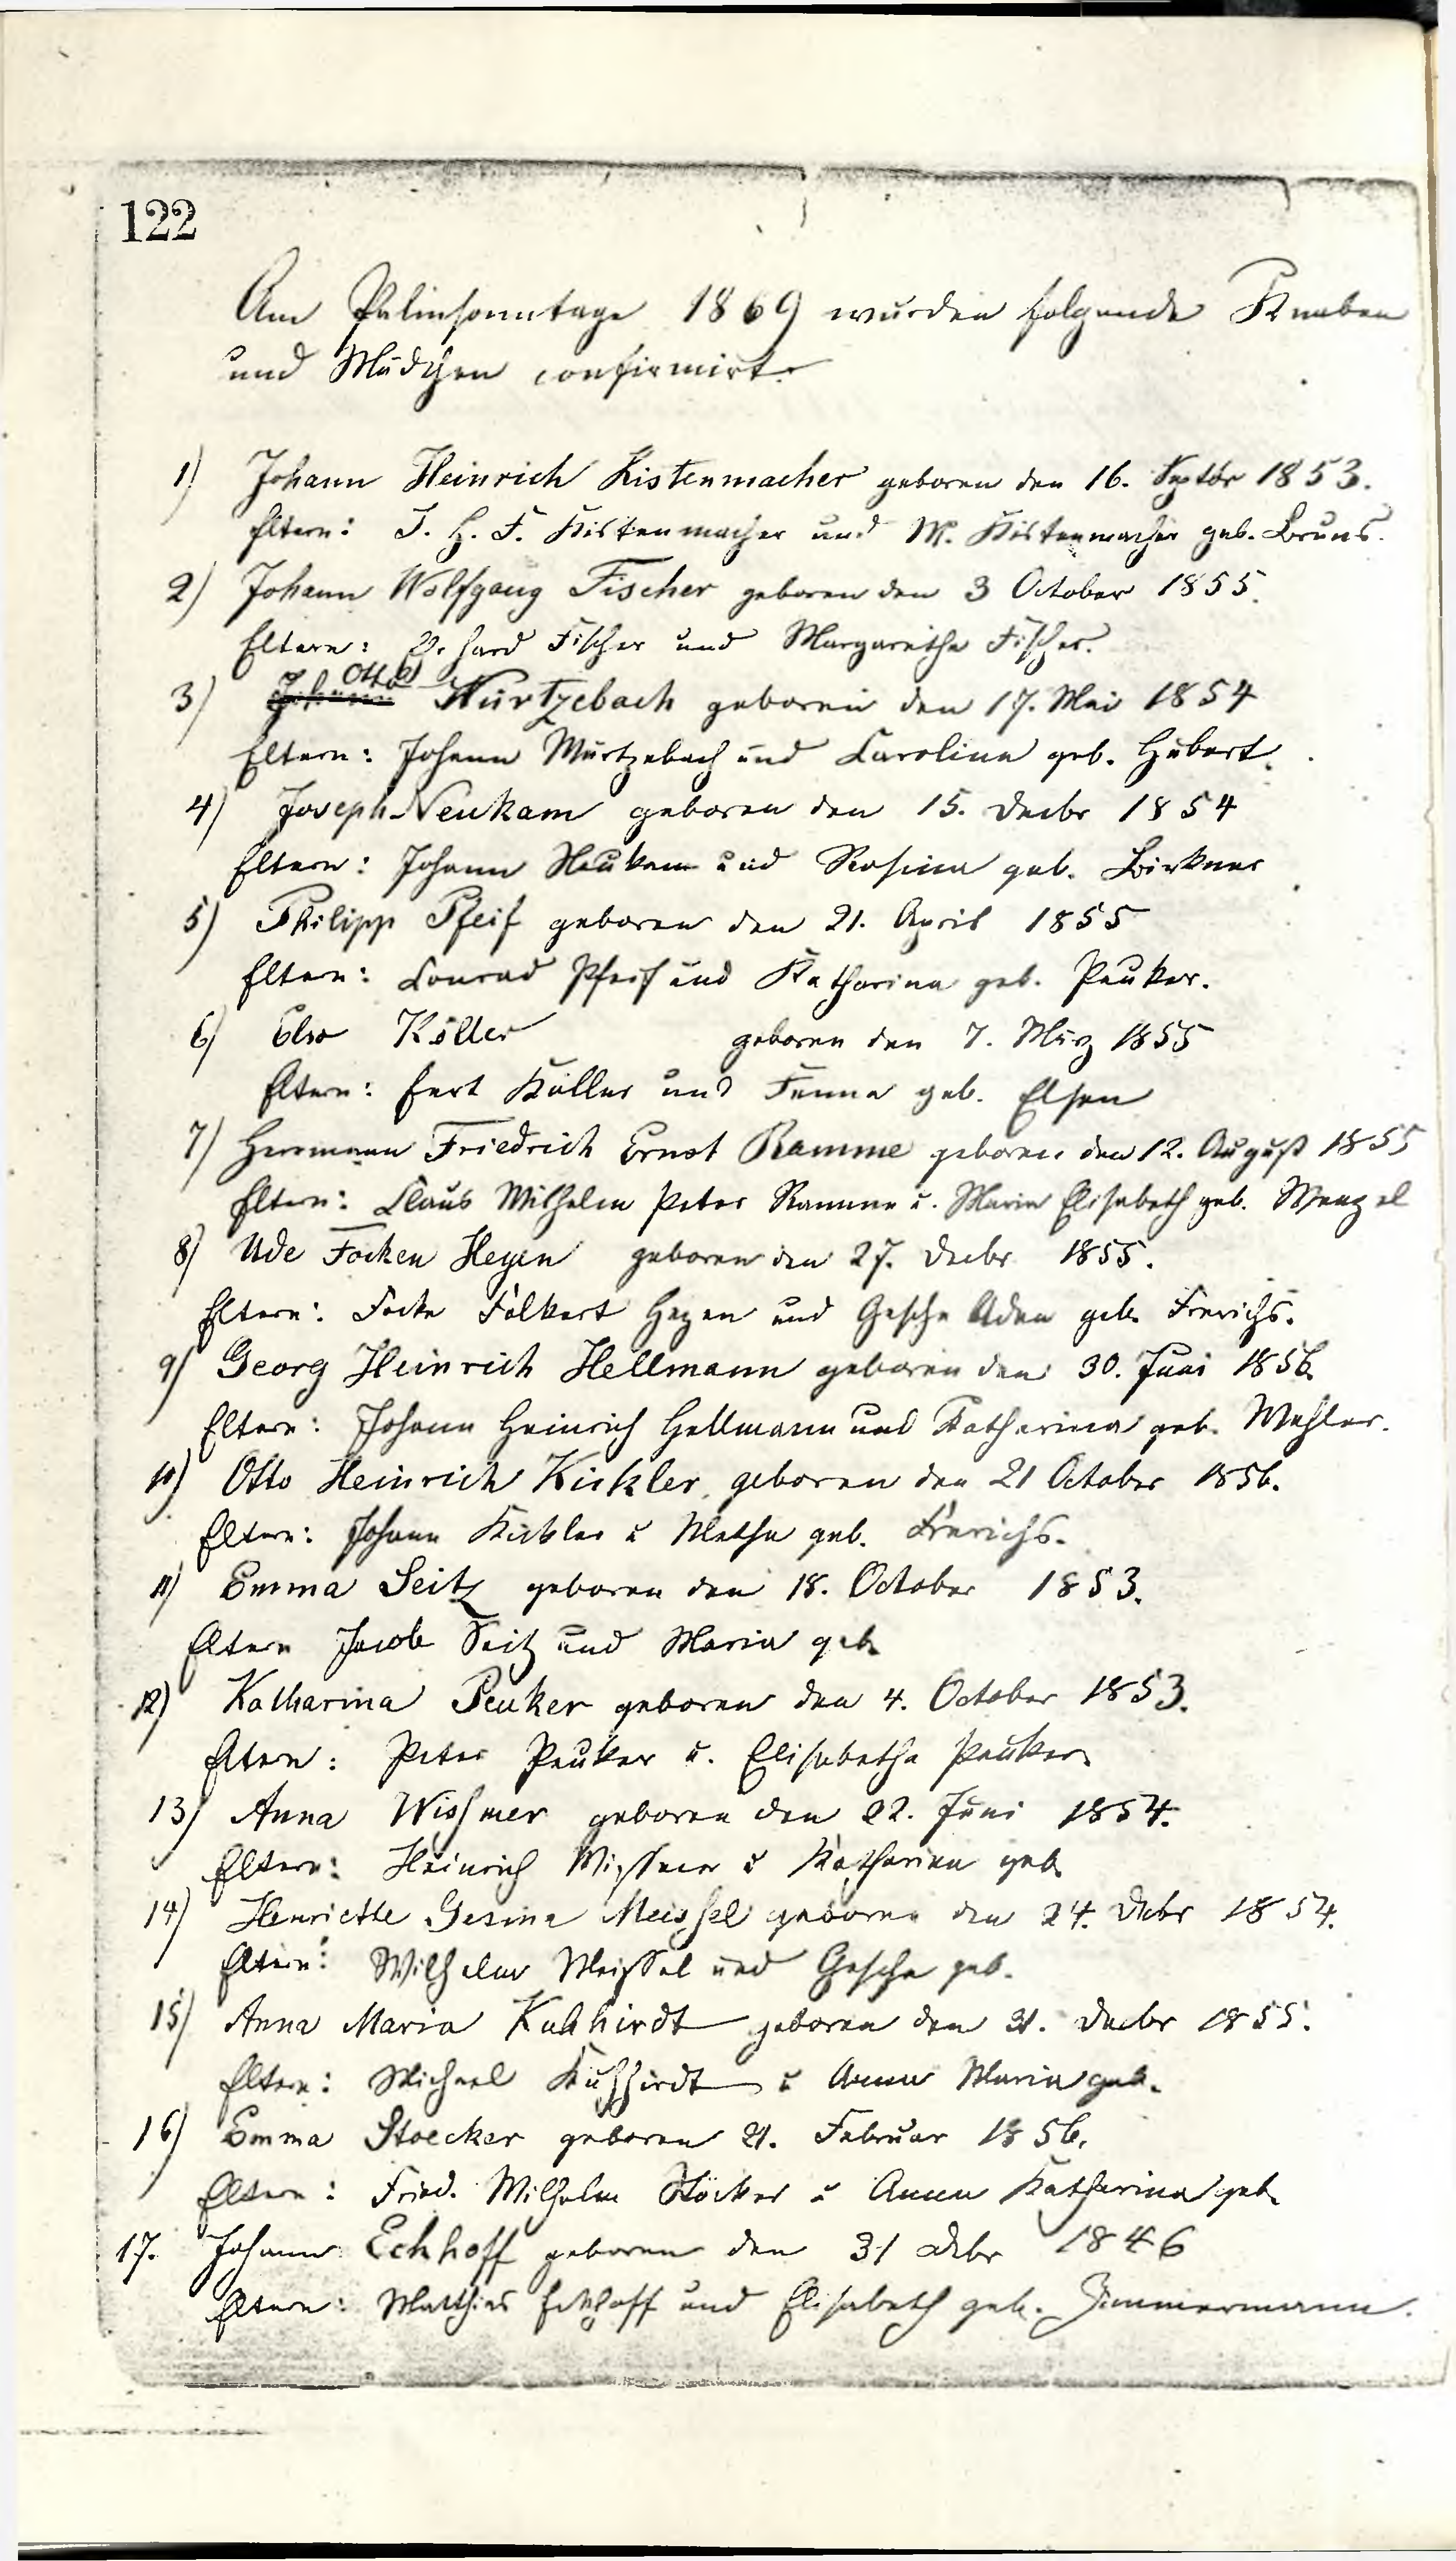 122
Am Palmsonntage 1869 wurden folgende Knaben
und Mädchen confirmirt.
1) Johann Heinrich Kistenmacher geboren den 16. Septbr 1853.
Eltern: J. H. F. Kistenmacher und M. Kistenmacher geb. Bruns.
2) Johann Wolfgang Fischer geboren den 3 October 1855.
Eltern: Fischer und Margarethe Fischer.
3) Johann Otto Wurtzebach geboren den 17. Mai 1854
Eltern: Johann Wurtzebach und Carolina geb. Hubert.
4) Joseph Neukam geboren den 15. Decbr 1854
Eltern: Johann Neukam und Rosina geb. Birkner
5) Philipp Pfeif geboren den 21. April 1855
Eltern: Conrad Pfeif und Katharina geb. Peuker.
6) Elso Köller geboren den 7. März 1855
Eltern: Eert Köller und Fenna geb. Elsen
7) Herrmann Friedrich Ernst Ramme geboren den 12. August 1855
Eltern: Claus Wilhelm Peter Ramme u. Maria Elisabeth geb. Wenzel
8) Ude Focken Heyen geboren den 27. Decbr 1855.
Eltern: Focke Folkert Heyen und Gesche Aden geb. Frerichs.
9) Georg Heinrich Hellmann geboren den 30. Juni 1856.
Eltern: Johann Heinrich Hellmann und Katharina geb. Wehler.
10) Otto Heinrich Kickler, geboren den 21 October 1856.
Eltern: Johann Kickler u Metha geb. Frerichs.
11) Emma Seitz geboren den 18. October 1853.
Eltern Jacob Seitz und Maria geb.
12) Katharina Peuker geboren den 4. October 1853.
Eltern: Peter Peuker u. Elisabetha Peuker.
13) Anna Wissmer geboren den 22. Juni 1854.
Eltern: Heinrich Wissmer u Katharina geb.
14) Henriette Gesina Meissel geboren den 24. Debr 1854.
Eltern: Wilhelm Meissel und Gesche geb.
15) Anna Maria Kuhhirdt geboren den 31. Decbr 1855.
Eltern: Michael Kuhhirdt u Anna Maria geb.
16) Emma Stoecker geboren 21. Februar 1856.
Eltern: Fried. Wilhelm Stöcker u Anna Katharina geb.
17. Johann Eckhoff geboren den 31 Debr 1846
Eltern: Matthias Eckhoff und Elisabeth geb. Zimmermann.